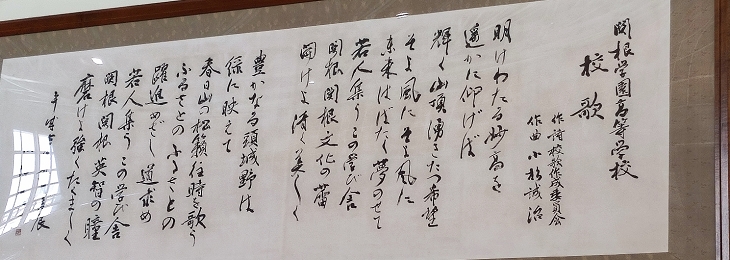 関根学園高等学校
校歌
作詩 校歌作成委員会
作曲 小杉誠治
明けわたる妙高を
遥かに仰げば
輝く山頂湧きたつ希望
そよ風にそよ風に
未来はばたく夢のせて
若人集うこの学び舎
関根関根文化の蕾
開けよ清く美しく
豊かなる頚城野は
緑に映えて
春日山の松籟往時を歌う
ふるさとのふるさとの
躍進めざし道求め
若人集うこの学び舎
関根関根英智の瞳
磨けよ強くたくましく